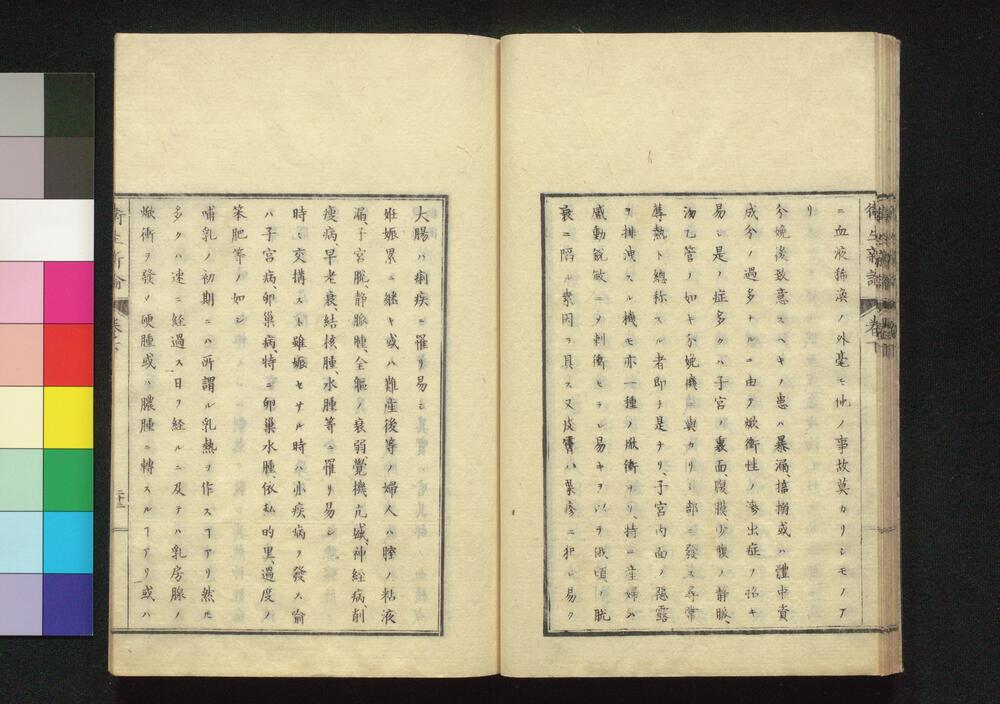 衛生新論
卷六
ニ血液稀渙ノ外毫モ他ノ事故莫カリシモノア
リ
分娩後致意スヘキノ患ハ暴漏、搐搦或ハ體中賁
成分ノ過多ナルニ由テ焮衝性ノ滲出症ヲ招キ
易シ是ノ症多クハ子宮ノ裏面、腹膜少腹ノ静脈、
泑乙管ノ如キ分娩機ニ與カリシ部ニ發ス尋常
蓐熱ト總称スル者即チ是ナリ、子宮内面ノ惡露
ヲ排洩スル機モ亦一種ノ焮衝ナリ、持ニ産婦ハ
感動鋭敏ニノ刺衝セラレ易キヲ以テ俄頃ノ
衰ニ陷ル素因ヲ具ス又皮膚ハ葉疹ニ犯シ易ク
大腸ハ痢疾ニ罹リ易シ
妊娠累ニ継キ或ハ難産後等ノ婦人ハ膣ノ粘液
漏、子宮脱、静脈腫、全軀ノ衰弱、覺機亢盛、神経病、削
瘦病、早老衰、結核腫、水腫等ニ罹リ易シ
時ニ交搆スト雖娠セサル時ハ亦疾病ヲ發ス喩
ハ子宮病、卵巢病、特ニ卵巢水腫、依私的里、過度ノ
笨肥等ノ如シ
哺乳ノ初期ニハ所謂ル乳熱ヲ作スヿアリ然𪜈
多クハ速ニ経過ス一日ヲ経ルニ及テハ乳房腺ノ
焮衝ヲ發ノ硬腫或ハ膿腫ニ轉スルヿアリ或ハ
衛生新論
卷六